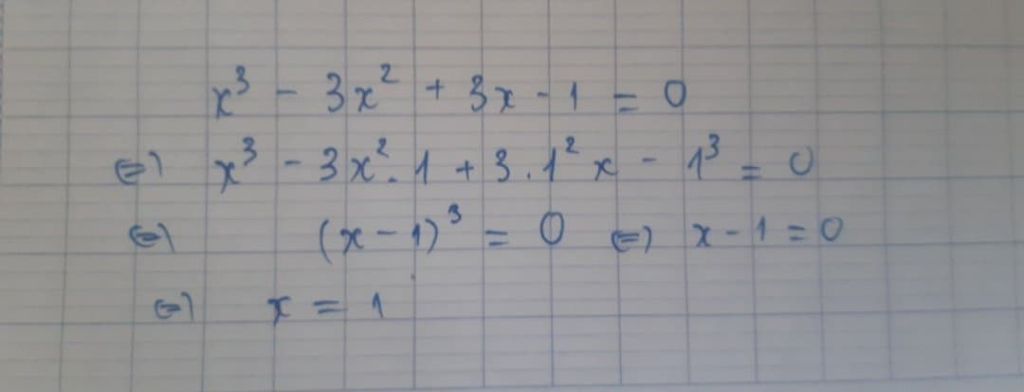 x³ - 3x² + 3x - 1 = 0
⇔ x³ - 3x².1 + 3.1²x - 1³ = 0
⇔ (x-1)³ = 0 ⇔ x-1 = 0
⇔ x = 1